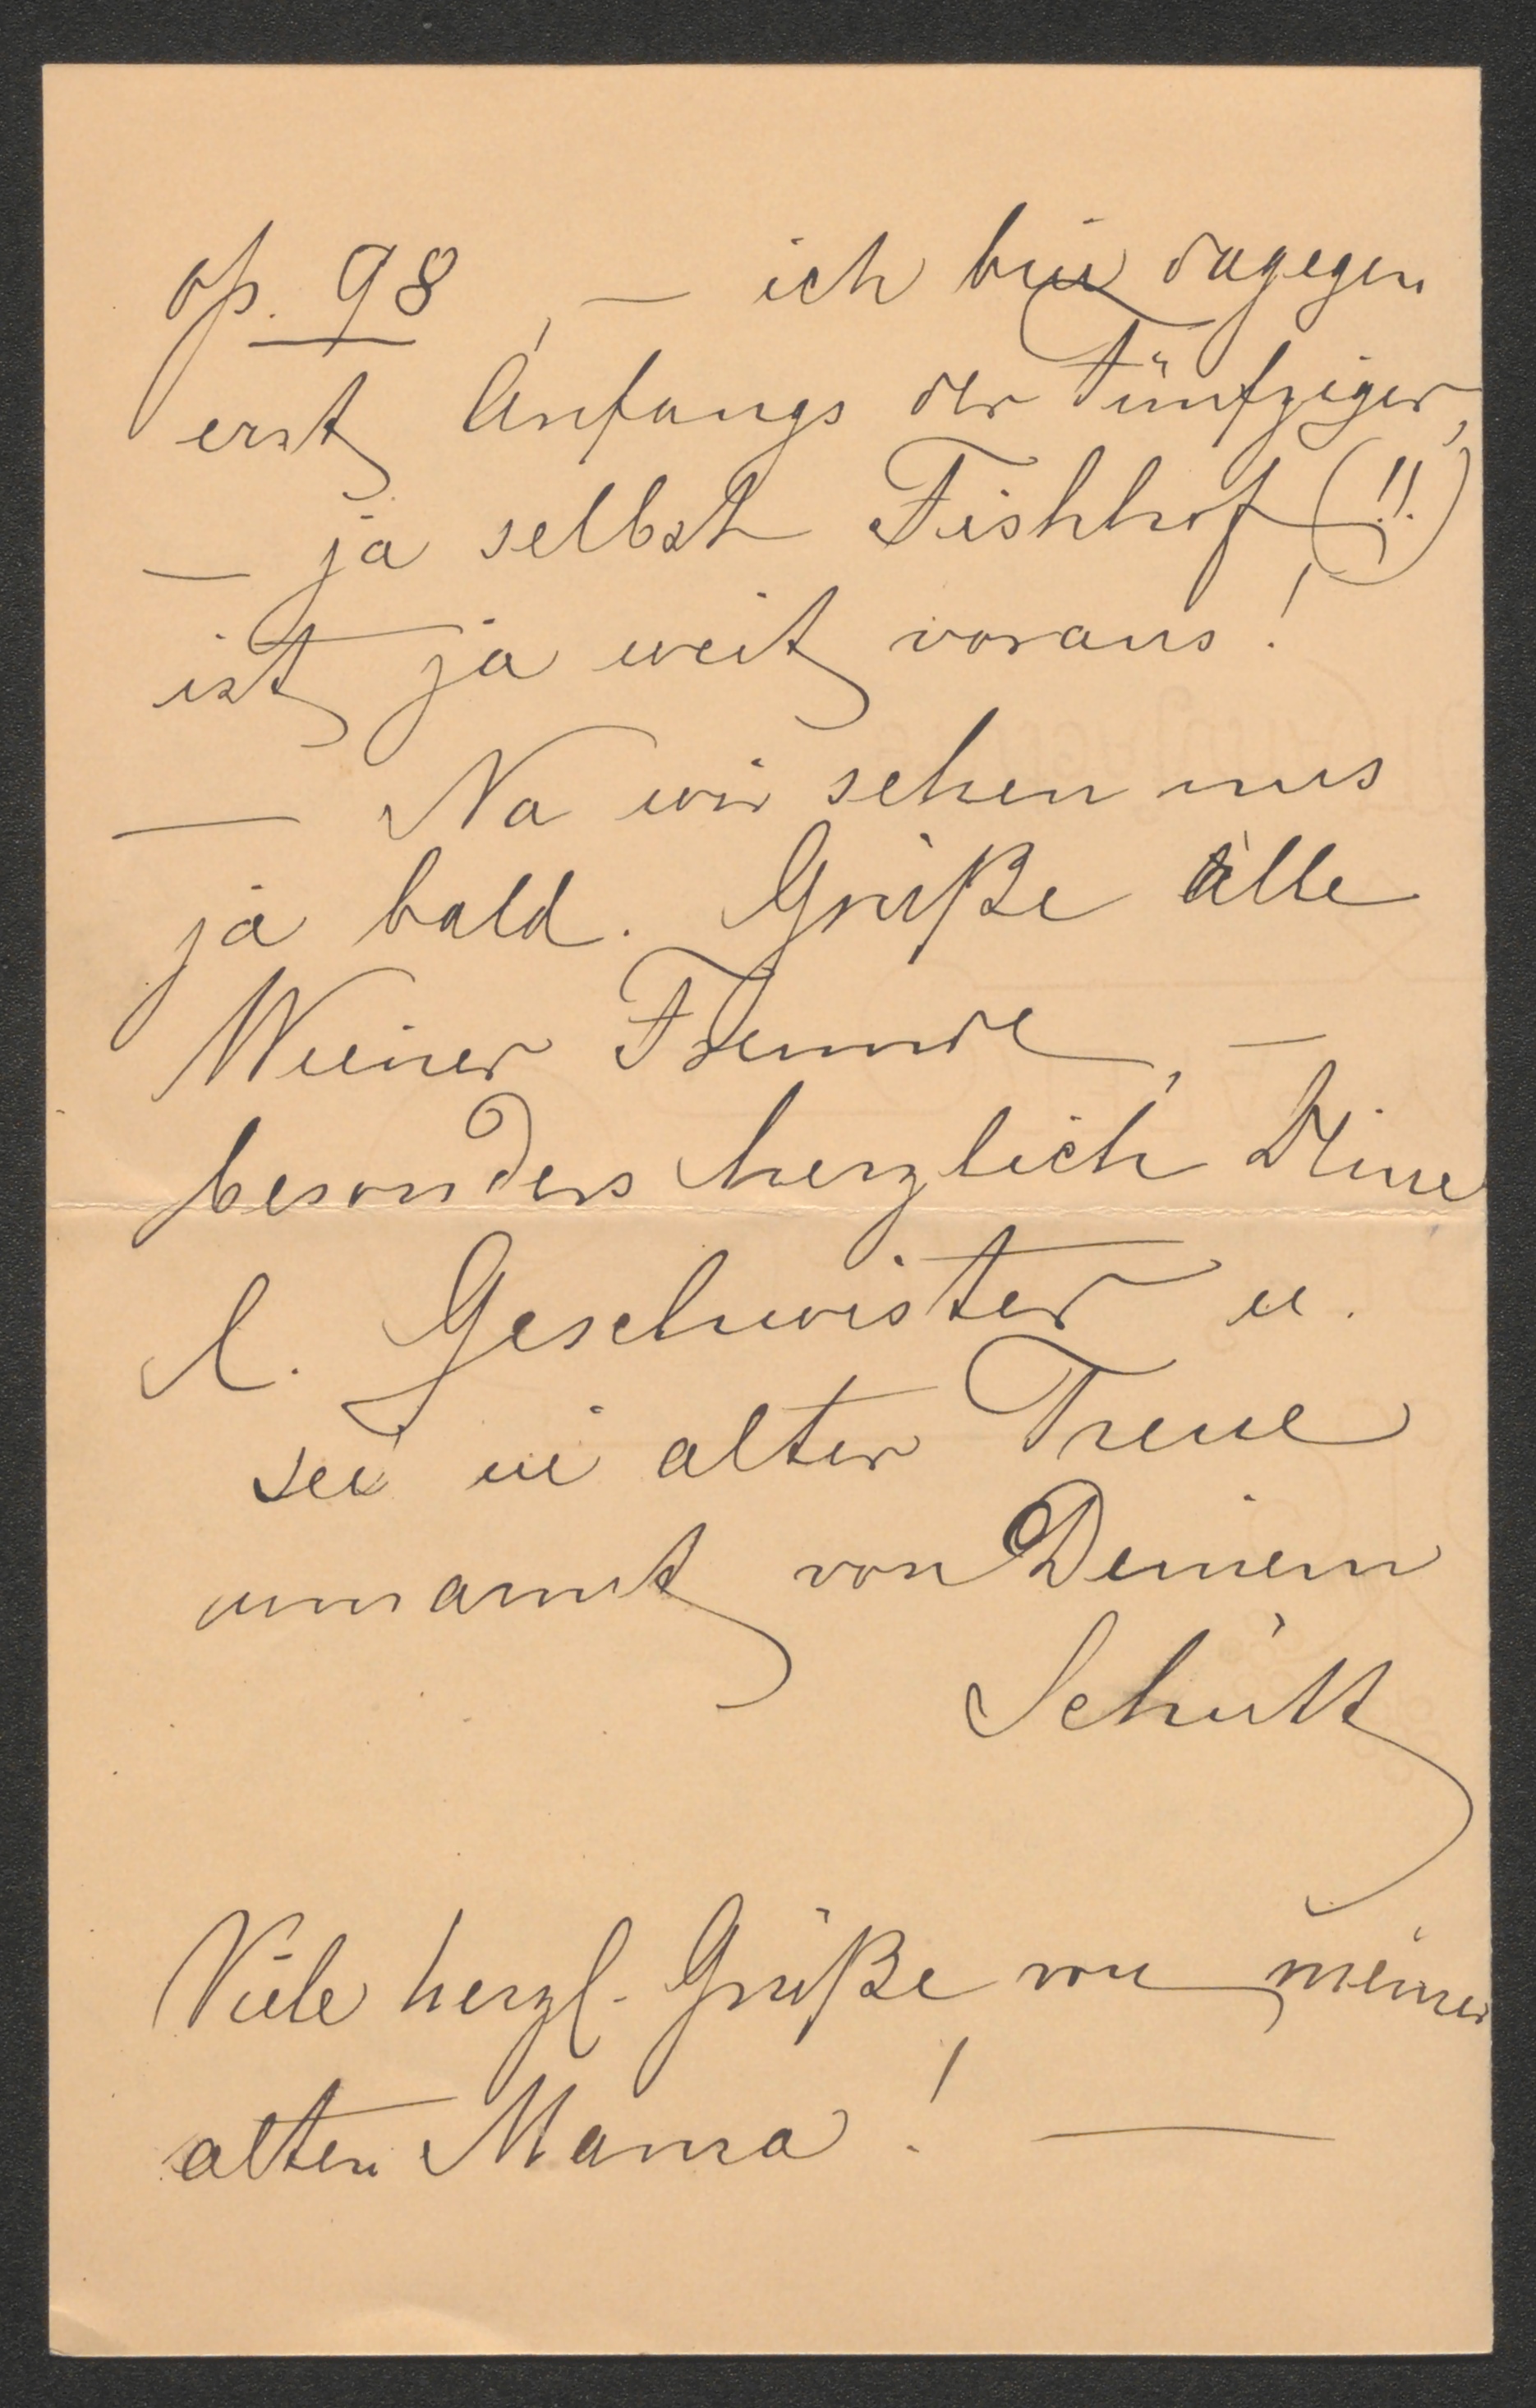 op. 98, — ich bin dagegen
erst Anfangs der Fünfziger,
— ja selbst Fishhof (!!)
ist ja weit voraus!
— Na wir sehen uns
ja bald. Grüße alle
Wiener Freunde, —
besonders herzlich Deine
l. Geschwister u.
sei in alter Treue
umarmt von Deinem
Schütt
Viele herzl. Grüße von meiner
alten Mama! —